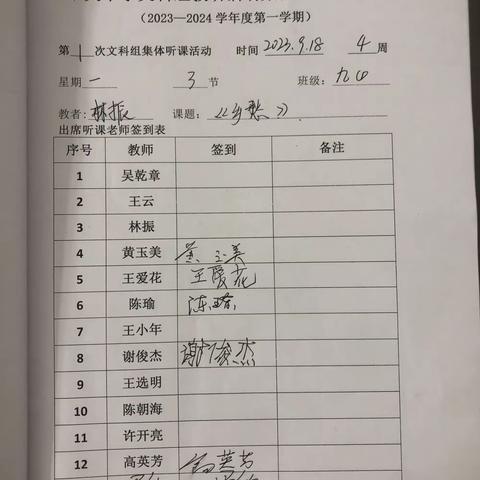 （2023—2024 学年度第一学期）
第1次文科组集体听课活动 时间 2023.9.18 4 周
星期 一 3 节 班级: 九(4)
教者: 林振 课题: 《乡愁》
出席听课老师签到表
序号 教师 签到 备注
1 吴乾章
2 王云
3 林振
4 黄玉美 黄玉美
5 王爱花 王爱花
6 陈瑜 陈瑜
7 王小年
8 谢俊杰 谢俊杰
9 王选明
10 陈朝海
11 许开亮
12 高英芳 高英芳